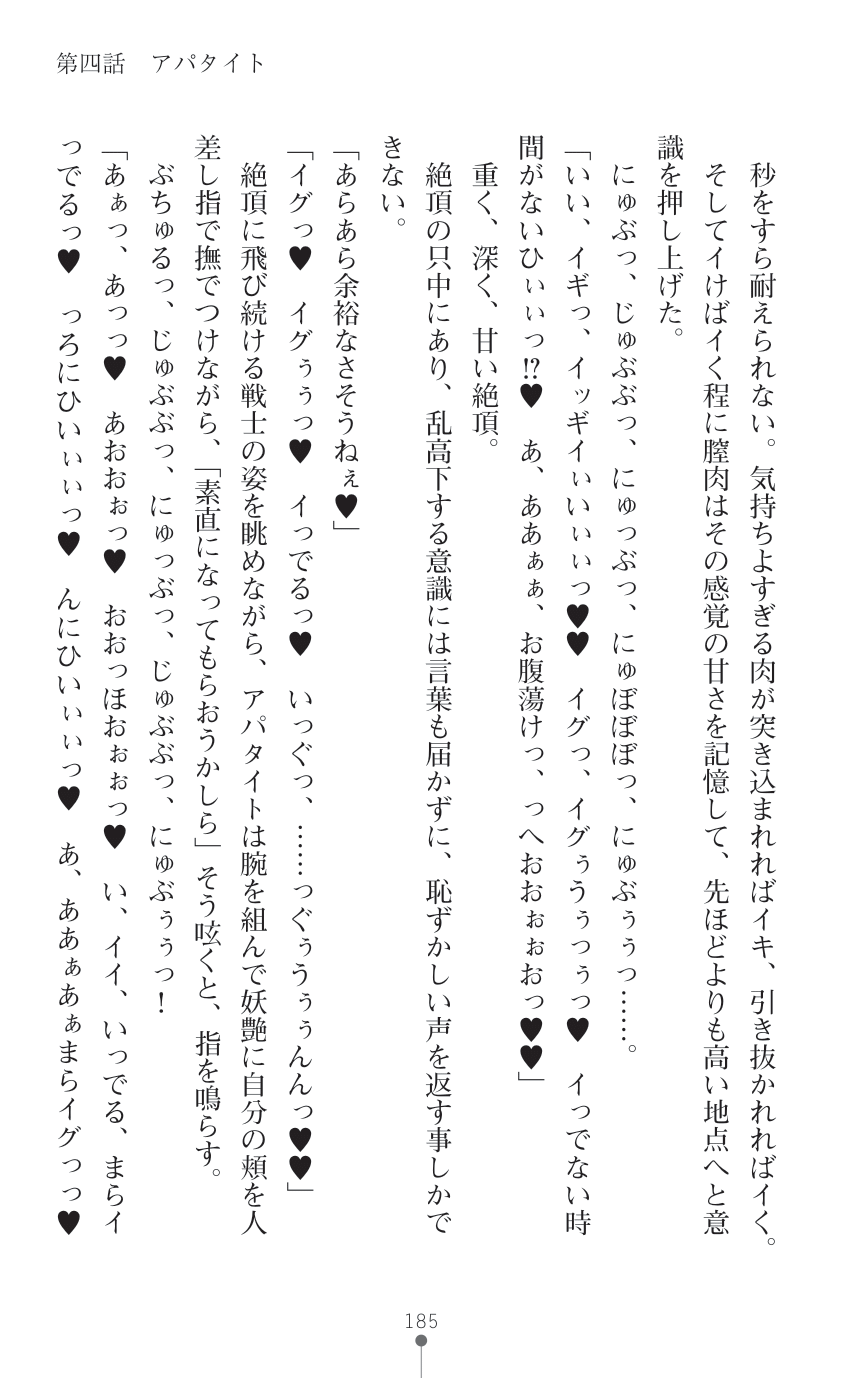 第四話　アパタイト
　秒をすら耐えられない。気持ちよすぎる肉が突き込まれればイキ、引き抜かれればイく。
　そしてイけばイく程に膣肉はその感覚の甘さを記憶して、先ほどよりも高い地点へと意
識を押し上げた。
　にゅぶっ、じゅぶぶっ、にゅっぶっ、にゅぼぼぼっ、にゅぶぅぅっ……。
「いい、イギっ、イッギイぃいぃぃっ♥♥　イグっ、イグぅうぅっぅっ♥　イっでない時
間がないひぃぃっ!?♥　あ、ああぁぁ、お腹蕩けっ、っへおおぉぉおっ♥♥」
　重く、深く、甘い絶頂。
　絶頂の只中にあり、乱高下する意識には言葉も届かずに、恥ずかしい声を返す事しかで
きない。
「あらあら余裕なさそうねぇ♥」
「イグっ♥　イグぅぅっ♥　イっでるっ♥　いっぐっ、……っぐぅうぅぅんんっ♥♥」
　絶頂に飛び続ける戦士の姿を眺めながら、アパタイトは腕を組んで妖艶に自分の頬を人
差し指で撫でつけながら、「素直になってもらおうかしら」そう呟くと、指を鳴らす。
　ぶちゅるっ、じゅぶぶっ、にゅっぶっ、じゅぶぶっ、にゅぶぅぅっ！
「あぁっ、あっっ♥　あおおぉっ♥　おおっほおぉぉっ♥　い、イイ、いっでる、まらイ
っでるっ♥　っろにひいぃぃっ♥　んにひいぃぃっ♥　あ、ああぁあぁまらイグっっ♥
185